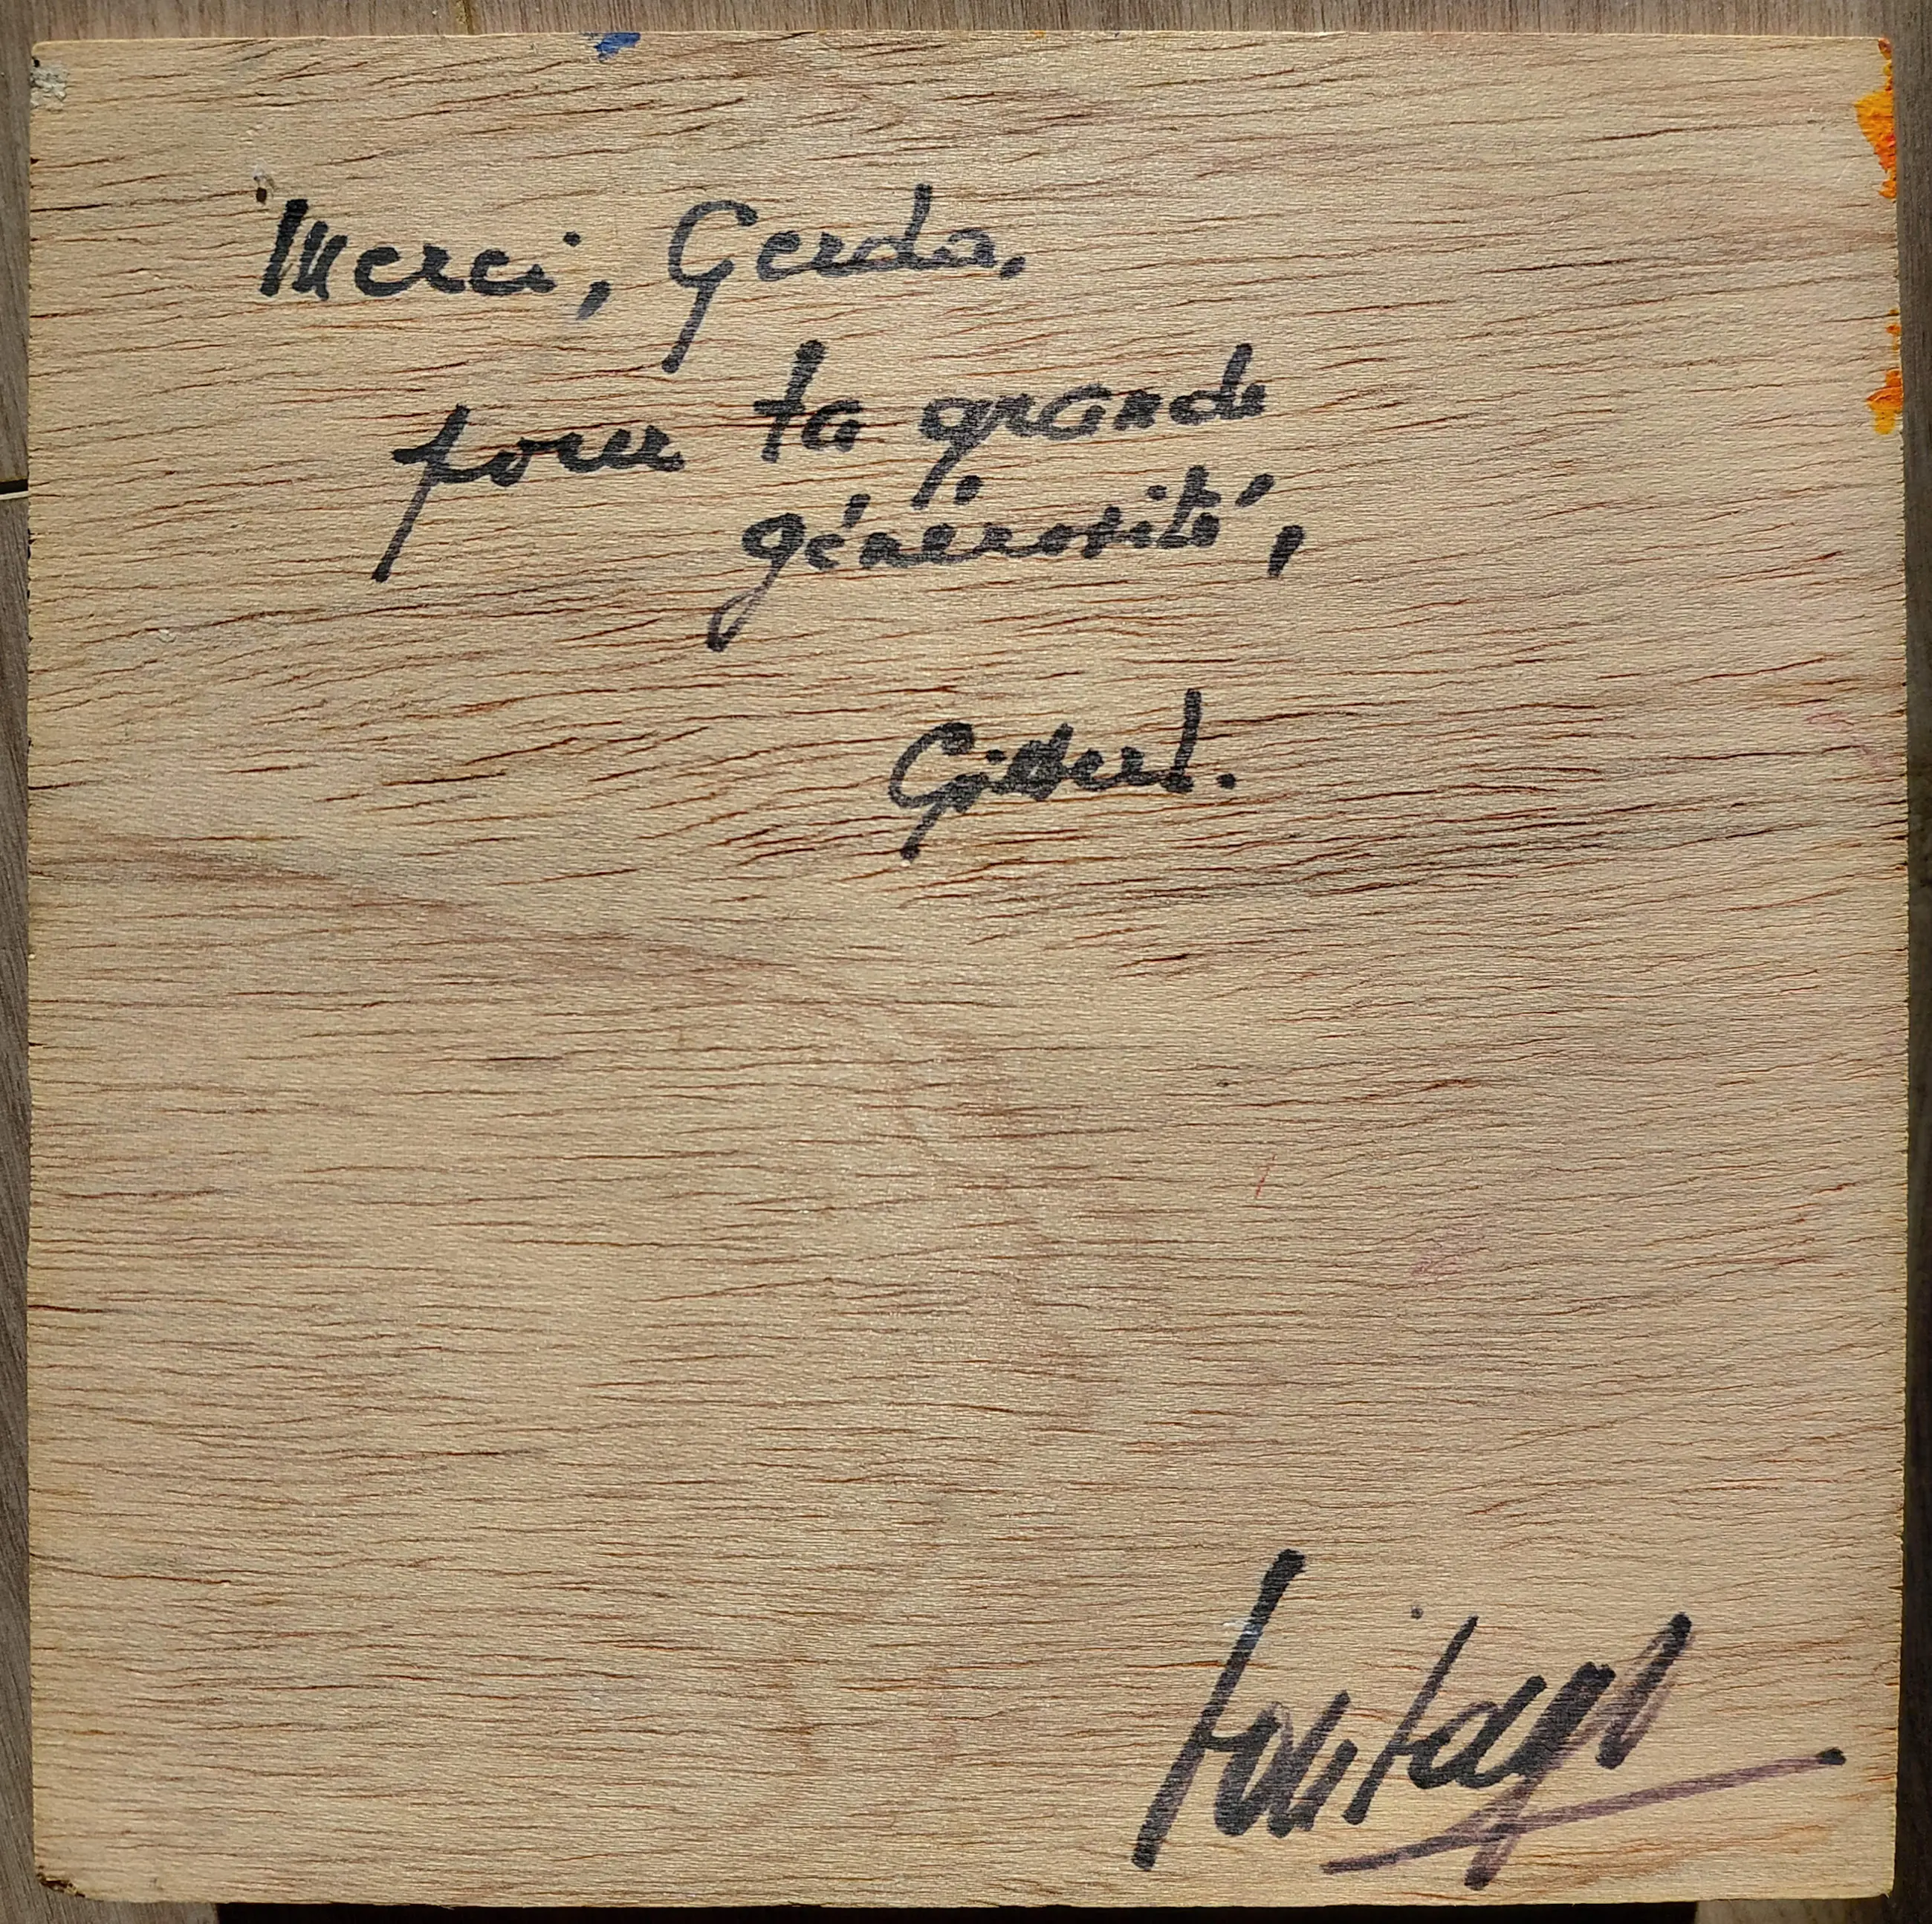 Merci, Gerda,
pour ta grande
générosité,
Gilbert.